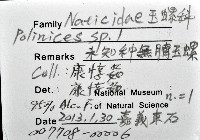 Family Naticidae 玉螺科
Polinices sp. 1
Remarks 未知種無臍玉螺
Coll.: 康憶茹
Det.: 康憶茹
National Museum
95% Alc-F. of Natural Science n.=1
Date 2013.1.30 嘉義東石
007708-00006